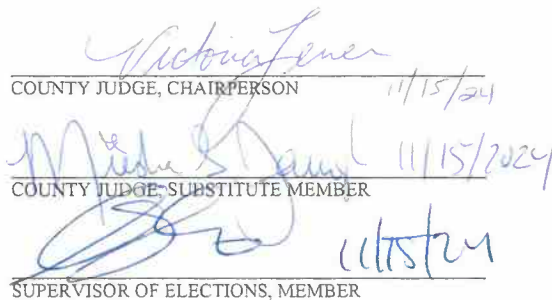 Victoria
COUNTY JUDGE, CHAIRPERSON 11/15/24
11/15/2024
COUNTY JUDGE, SUBSTITUTE MEMBER
11/15/24
SUPERVISOR OF ELECTIONS, MEMBER